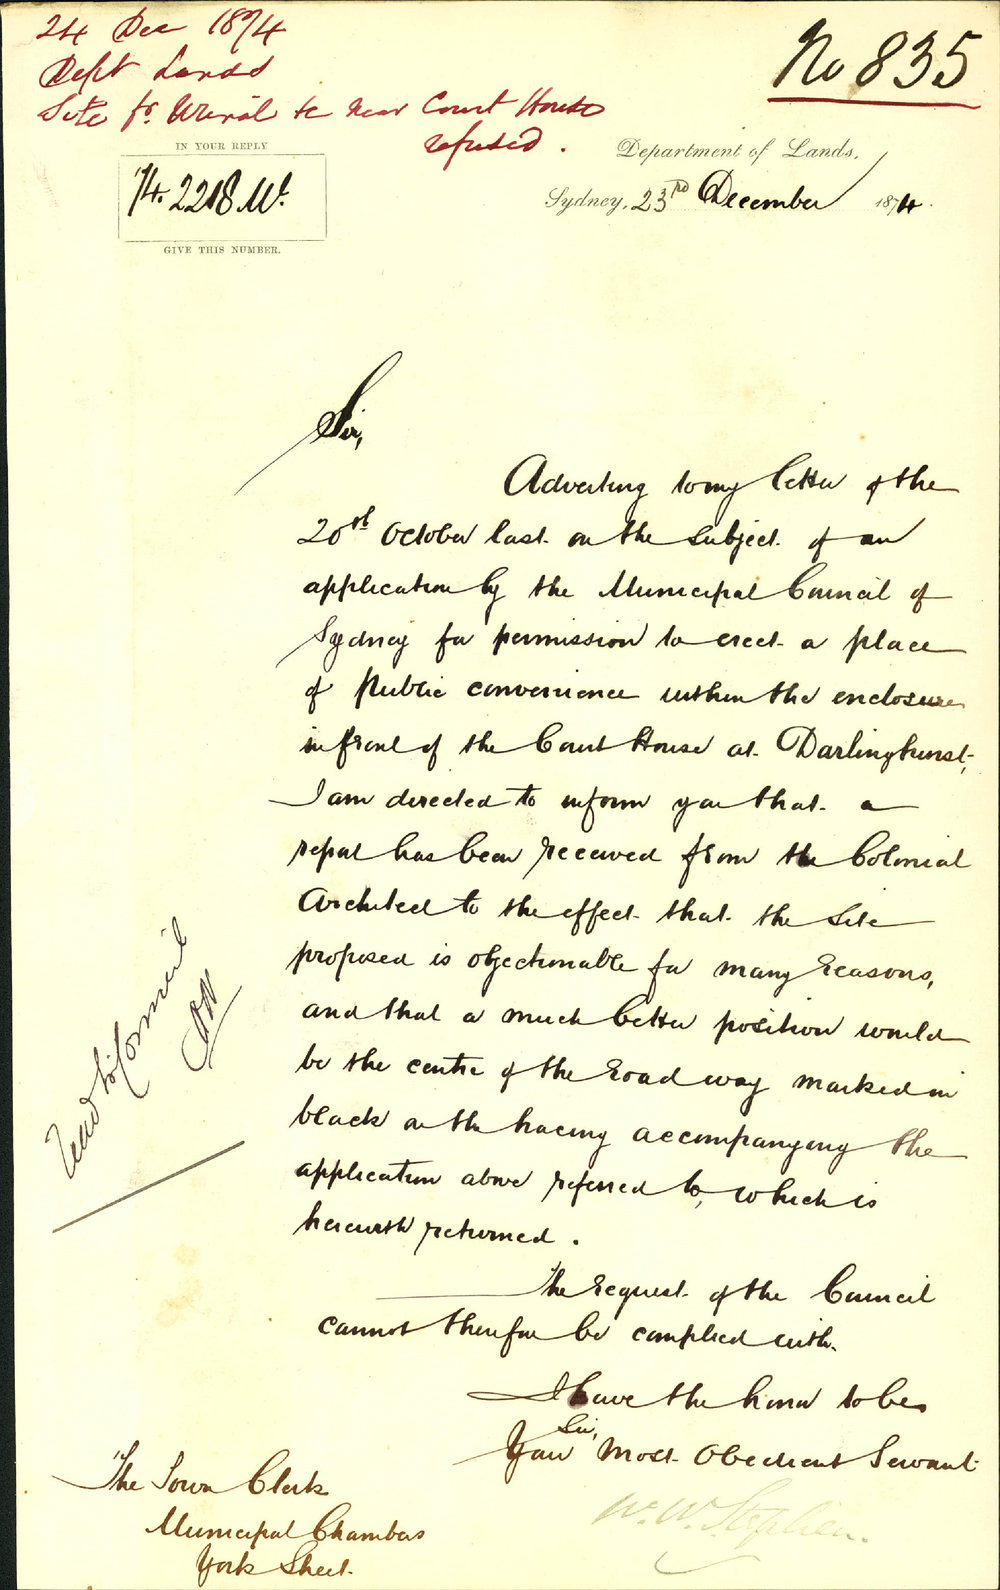 24 Dec 1874
Dept Lands
Site fr. Urinal &c near Court House
refused.
No 835
IN YOUR REPLY
74. 2218 M.
GIVE THIS NUMBER.
Department of Lands,
Sydney, 23rd December 1874.
Sir,
Adverting to my letter of the
20th October last on the subject of an
application by the Municipal Council of
Sydney for permission to erect a place
of Public convenience within the enclosure
in front of the Court House at Darlinghurst,
I am directed to inform you that a
report has been received from the Colonial
Architect to the effect that the site
proposed is objectionable for many reasons,
and that a much better position would
be the centre of the road way marked in
black on the tracing accompanying the
application above referred to, which is
herewith returned.
The request of the Council
cannot therefore be complied with.
I have the honor to be
Sir,
Your Most Obedient Servant
W. W. Stephen.
The Town Clerk
Municipal Chambers
York Street.
Read to Council